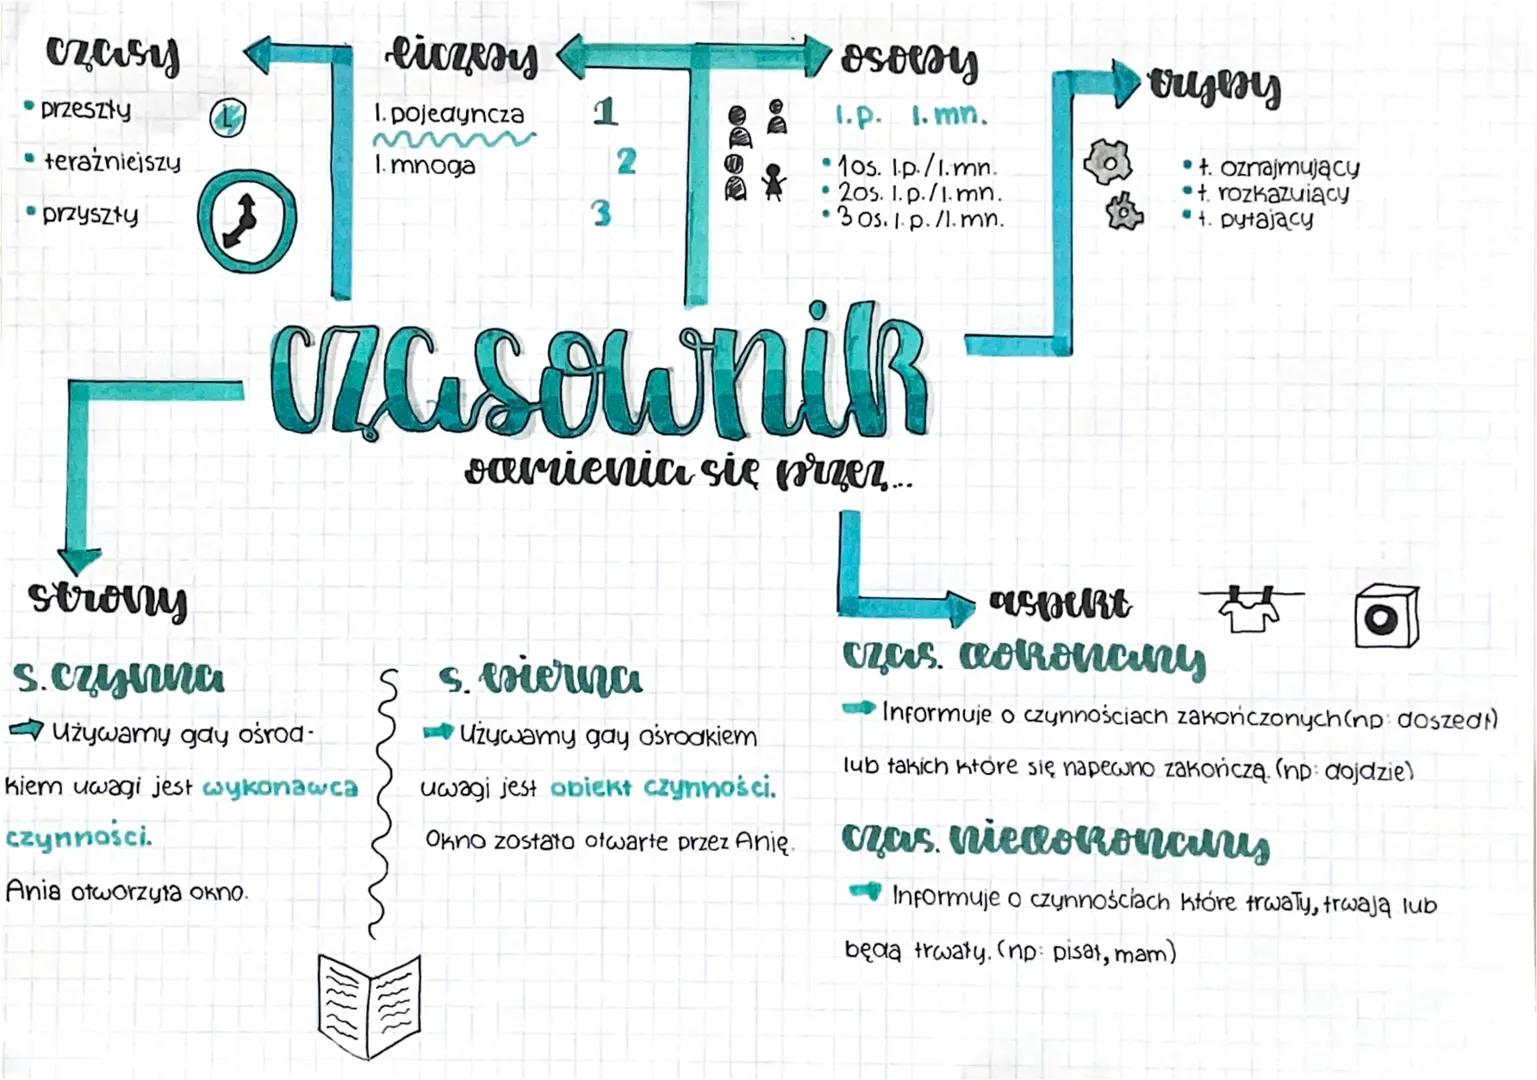 czasy
• przeszły
• teraźniejszy
• przyszły
liczby
l. pojedyncza
l. mnoga
1
2
3
osoby
l.p. l. mn.
• 1os. l.p./l.mn.
• 2os. l.p./l.mn.
• 3os. l.p./l.mn.
tryby
• t. oznajmujący
• t. rozkazujący
• t. pytający
czasownik
odmienia się przez...
strony
s. czynna
Używamy gdy ośrod-
kiem uwagi jest wykonawca
czynności.
Ania otworzyła okno.
s. bierna
Używamy gdy ośrodkiem
uwagi jest obiekt czynności.
Okno zostało otwarte przez Anię.
aspekt
czas. dokonany
Informuje o czynnościach zakończonych (np: doszedł)
lub takich które się napewno zakończą. (np: dojdzie)
czas. niedokonany
Informuje o czynnościach które trwały, trwają lub
będą trwały. (np: pisał, mam)